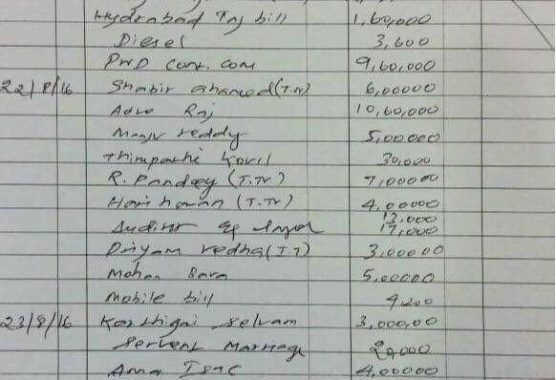 Hyderabad Taj bill 1,60,000
Diesel 3,600
PWD Cont. com 9,60,000
22/8/16 Shabir ahamed (T.N) 6,00000
Advo Raj 10,60,000
Manju reddy 5,00000
Thirupathi Kovil 30,000
R. Pandey (T.TV) 7,00000
Hari haran (T.TV) 4,00000
Auditor 13,000
17,000
Priyam redha (T.T) 3,00000
Mohan 5,00000
Mobile bill 4200
23/8/16 Karthigai selvam 3,000,00
Servent Marriage
Anna 4,00000